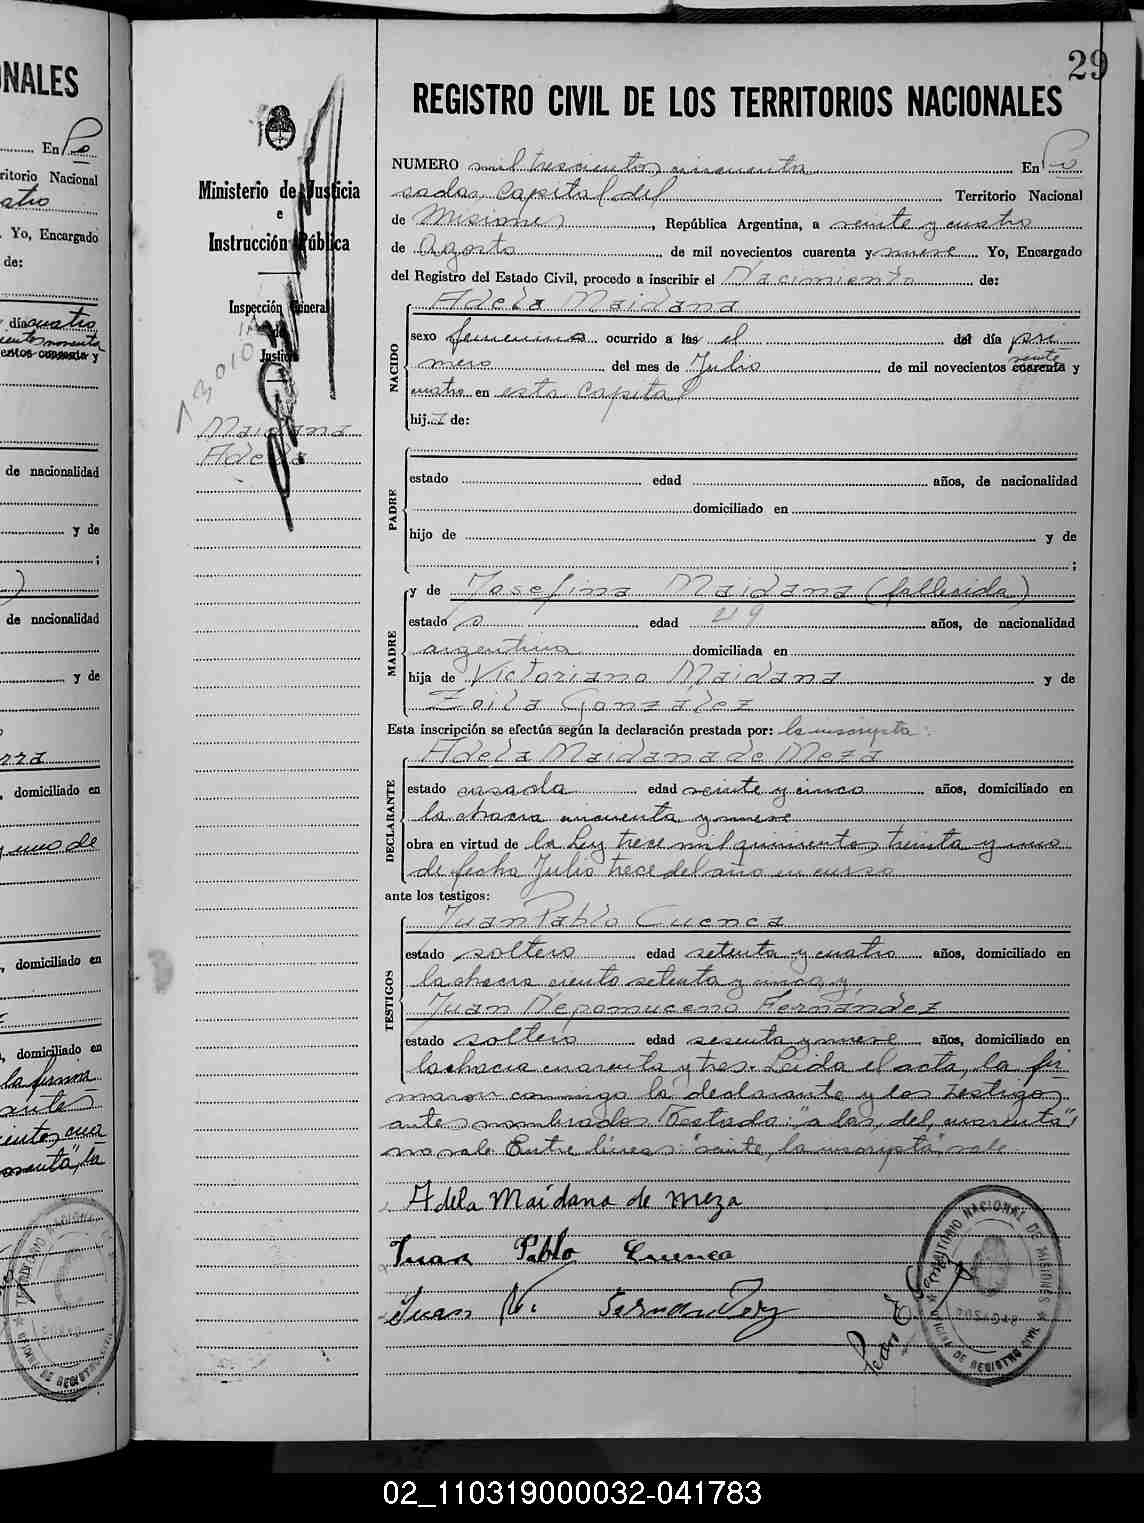 29
REGISTRO CIVIL DE LOS TERRITORIOS NACIONALES
Ministerio de Justicia
e
Instrucción Pública
Inspección General
de
Justicia
Maidana
Adela
NUMERO mil trescientos cincuenta En Po
sadas, Capital del Territorio Nacional
de Misiones, República Argentina, a veinte y cuatro
de Agosto de mil novecientos cuarenta y nueve Yo, Encargado
del Registro del Estado Civil, procedo a inscribir el Nacimiento de:
NACIDO
Adela Maidana
sexo femenino ocurrido a las el del día pri
mero del mes de Julio de mil novecientos cuarenta veinte y
cuatro en esta capital
hija de:
PADRE
estado edad años, de nacionalidad
domiciliado en
hijo de y de
;
MADRE
y de Josefina Maidana (fallesida)
estado s edad 29 años, de nacionalidad
argentina domiciliada en
hija de Victoriano Maidana y de
Zoila González
Esta inscripción se efectúa según la declaración prestada por: la inscripta:
DECLARANTE
Adela Maidana de Meza
estado casada edad veinte y cinco años, domiciliado en
la chacra cincuenta y nueve
obra en virtud de la Ley trece mil quinientos treinta y uno
de fecha Julio trece del año en curso
ante los testigos:
TESTIGOS
Juan Pablo Cuenca
estado soltero edad setenta y cuatro años, domiciliado en
la chacra ciento setenta y cinco, y
Juan Nepomuceno Fernández
estado soltero edad sesenta y nueve años, domiciliado en
la chacra cuarenta y tres. Leida el acta, la fir
maron conmigo la declarante y los testigos
antes nombrados. Testado: "a las, del, cuarenta",
no vale. Entre líneas: "veinte, la inscripta" vale.
Adela Maidana de Meza
Juan Pablo Cuenca
Juan N. Fernandez
TERRITORIO NACIONAL DE MISIONES
OFICINA DE REGISTRO CIVIL
POSADAS
02_110319000032-041783